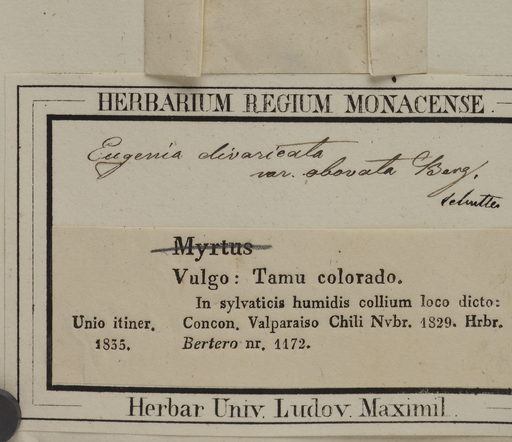 HERBARIUM REGIUM MONACENSE.
Eugenia divaricata
var. obovata Berg.
Myrtus
Vulgo: Tamu colorado.
In sylvaticis humidis collium loco dicto:
Unio itiner. Concon. Valparaiso Chili Nvbr. 1829. Hrbr.
1835. Bertero nr. 1172.
Herbar Univ. Ludov. Maximil.